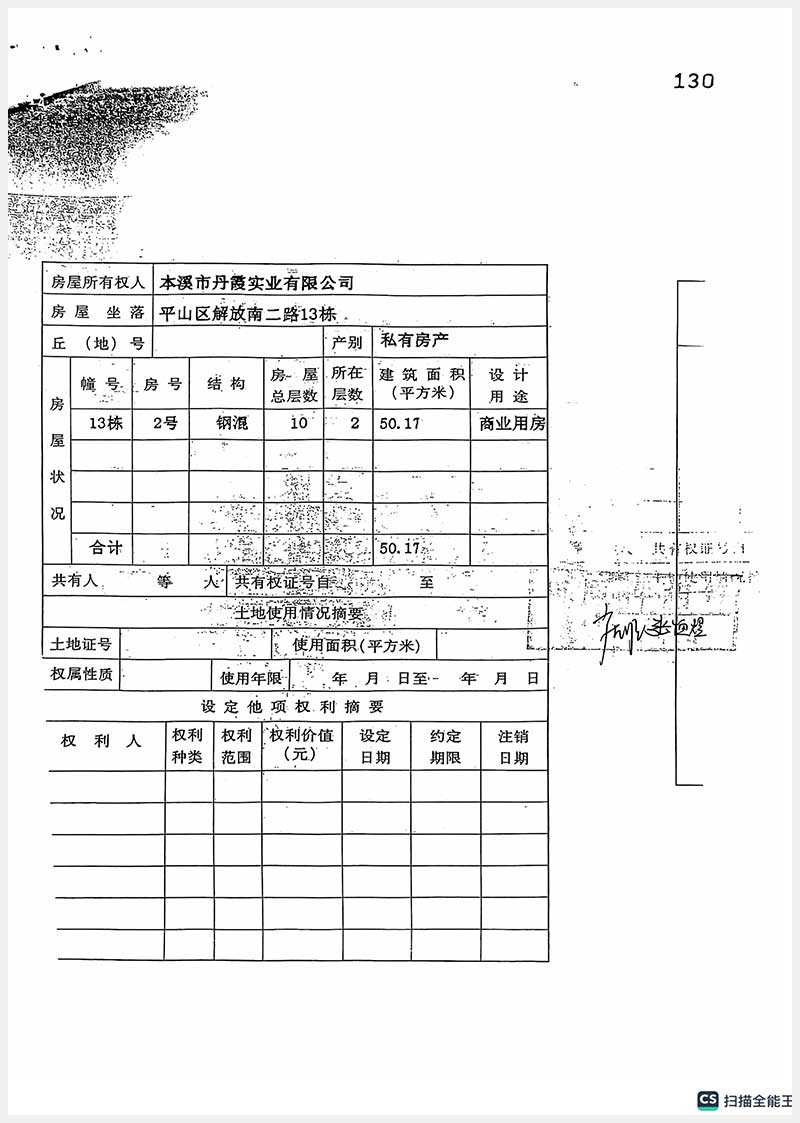 130
房屋所有权人 本溪市丹霞实业有限公司
房屋坐落 平山区解放南二路13栋
丘（地）号 产别 私有房产
房屋状况 幢号 房号 结构 房屋总层数 所在层数 建筑面积（平方米） 设计用途
13栋 2号 钢混 10 2 50.17 商业用房
合计 50.17
共有人 等 人 共有权证号自 至
共有权证号自
土地使用情况摘要
土地证号 使用面积(平方米)
权属性质 使用年限 年 月 日至 年 月 日
设定他项权利摘要
权利人 权利种类 权利范围 权利价值（元） 设定日期 约定期限 注销日期
CS 扫描全能王